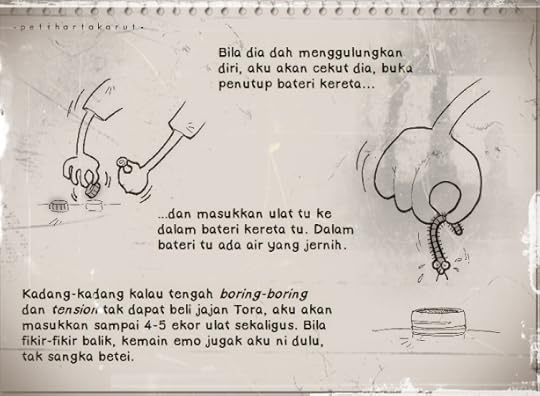 -petihartakarut-
Bila dia dah menggulungkan
diri, aku akan cekut dia, buka
penutup bateri kereta...
...dan masukkan ulat tu ke
dalam bateri kereta tu. Dalam
bateri tu ada air yang jernih.
Kadang-kadang kalau tengah boring-boring
dan tension tak dapat beli jajan Tora, aku akan
masukkan sampai 4-5 ekor ulat sekaligus. Bila
fikir-fikir balik, kemain emo jugak aku ni dulu,
tak sangka betei.